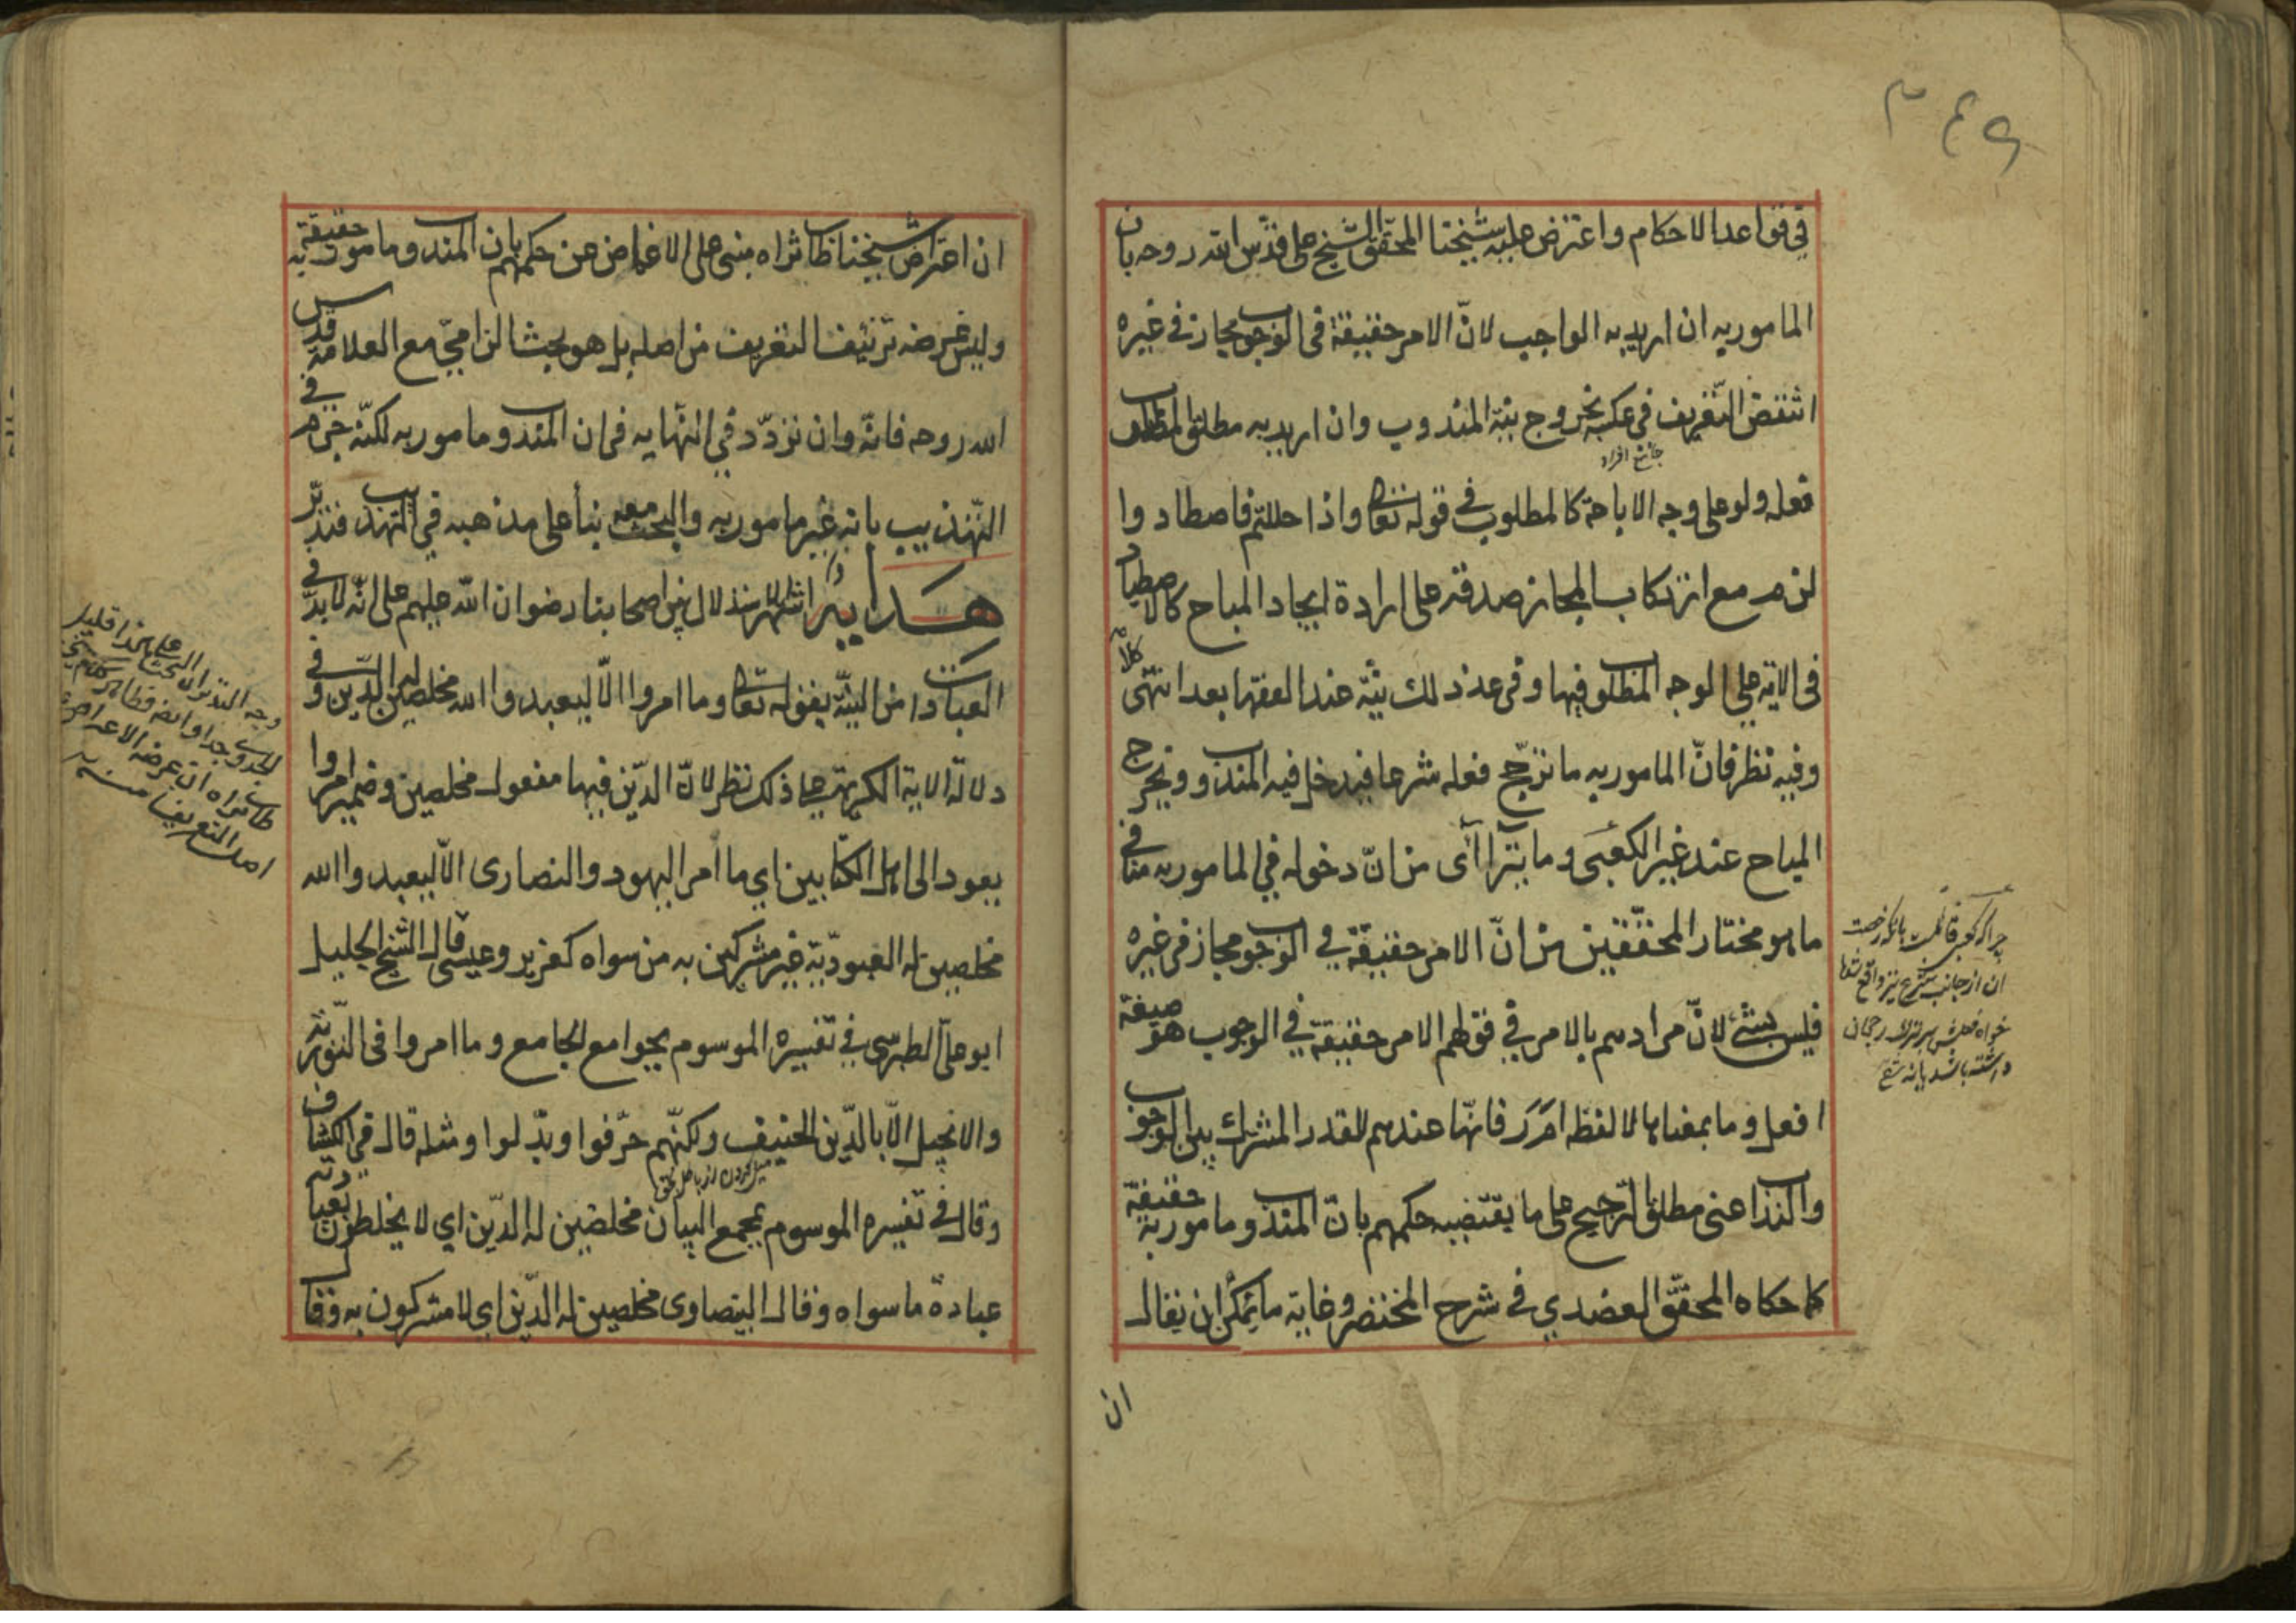 ٣٤٩
في قواعد الاحكام واعترض عليه شيخنا المحقق الشيخ علي قدّس الله روحه بان
المامور به ان اريد به الواجب لانّ الامر حقيقة فى الوجوب مجاز فى غيره
انتقض التّعريف فى عكسه بخروج نيّة المندوب وان اريد به مطلق المطلوب
جامع افراد
فعله ولو على وجه الاباحة كالمطلوب في قوله تعالى واذا حللتم فاصطادوا
لزم مع ارتكاب المجاز صدقه على ارادة ايجاد المباح كالاصطياد
فى الاية على الوجه المطلوب فيها وفى عد ذلك نيّة عند الفقها بعد انتهى كلامه
وفيه نظر فانّ المامور به ما ترجّح فعله شرعا فيدخل فيه المندوب ويخرج
المباح عند غير الكعبى وما يترا آى من انّ دخوله في المامور به مناف
ما هو مختار المحققين من انّ الامر حقيقة في الوجوب مجاز فى غيره
فليس بشئ لانّ مرادهم بالامر في قولهم الامر حقيقة في الوجوب هو صيغة
افعل وما بمعناها لا لفظه ا م ر فانّها عندهم للقدر المشترك بين الوجوب
والندب اعنى مطلق الترجيح على ما يقتضيه حكمهم بانّ المندوب مامور به حقيقة
كما حكاه المحقّق العضدي في شرح المختصر وغاية ما يمكن ان يقال
ان
چرا كه كعبى قائلست بانكه رخصت
ان از جانب شرع نيز واقع شد
خواه فعلش بر ترك رجحان
داشته باشد يا نه
ان اعتراض شيخنا طاب ثراه مبنى على الاغماض عن حكمهم بان المندوب مامور به حقيقة
وليس غرضه تزييف التعريف من اصله بل هو بحث الزامىّ مع العلامة قدس
الله روحه فانه وان تردّد في النّهايه فى ان المندوب مامور به لكنّه جزم في
التهذيب بانه غير مامور به والبحث معه بنأ على مذهبه في التهذيب فتدبّر
هداية اشتهر الاستدلال بين اصحابنا رضوان الله عليهم على انّه لا بدّ في
العبادات من النيّة بقوله تعالى وما امروا الّا ليعبدوا الله مخلصين له الدّين وفى
دلالة الاية الكريمة على ذلك نظر لانّ الدّين فيها مفعول مخلصين وضمير امروا
يعود الى اهل الكتابين اي ما امر اليهود والنصارى الّا ليعبدوا الله
مخلصين له العبوديّة غير مشركين به من سواه كعزير وعيسى قال الشيخ الجليل
ابو علىّ الطبرسى في تفسيره الموسوم بجوامع الجامع وما امروا فى التّورية
والانجيل الّا بالدّين الحنيف ولكنّهم حرّفوا وبدّلوا ومثله قال في الكشاف
ميل كردن از باطل بحق
وقال في تفسيره الموسوم بمجمع البيان مخلصين له الدّين اي لا يخلطون بعبادته
عبادة ما سواه وقال البيضاوى مخلصين له الدّين اي لا مشركون به وقفا
وجه التدبر ان البحث على هذا قليل
الجدوى جدا وايضا فظاهر كلام شيخنا
طاب ثراه ان غرضه الاعتراض على
اصل التعريف منه